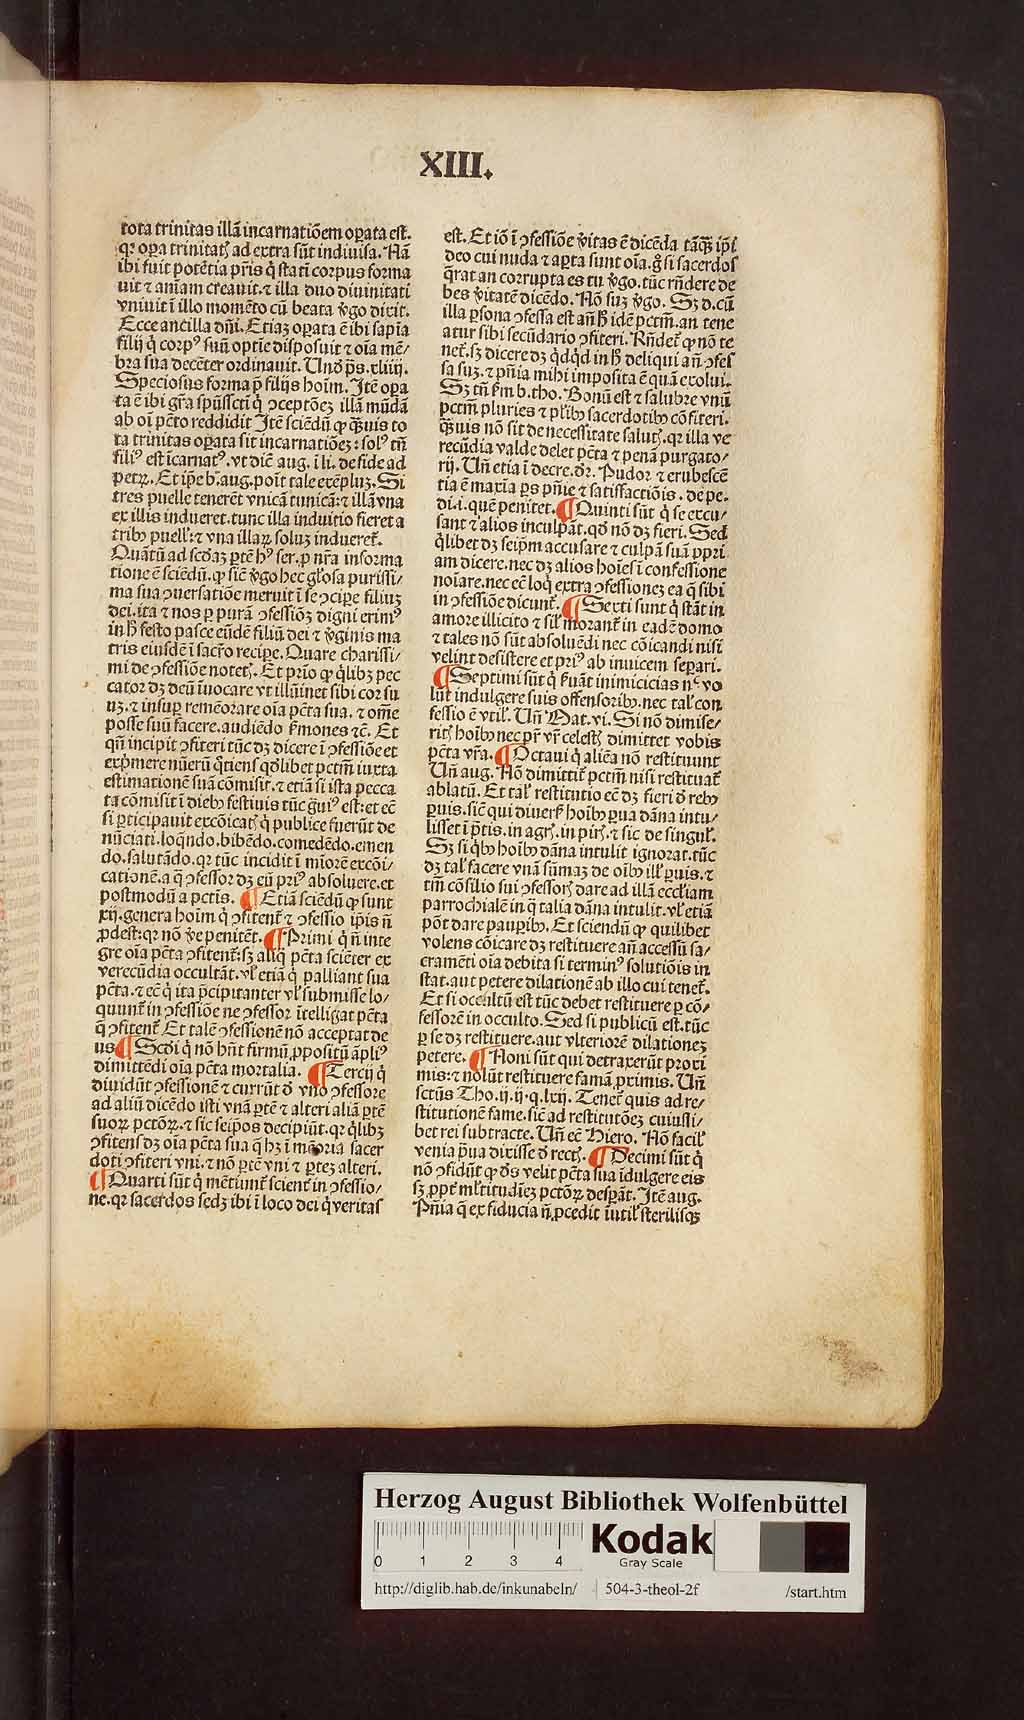 XIII.
tota trinitas illã incarnatiõem oꝑata est.
qꝛ oꝑa trinitatꝭ ad extra sũt indiuisa. Nã
ibi fuit potẽtia pr̃is q̇ stati corpus forma
uit ⁊ aniãm creauit.⁊ illa duo diuinitati
vniuit ĩ illo momẽto cũ beata v̓go dixit.
Ecce ancilla dñi. Etiaꝫ oꝑata ẽ ibi sapĩa
filij q̇ corpꝰ suũ optie disposuit ⁊ oĩa mẽ/
bra sua decẽter ordinauit. Unđ p̃s.xliiij.
Speciosus forma p̃ filijs hoĩm. Itẽ oꝑa
ta ẽ ibi gr̃a spũssctĩ q̇ ↄceptõeꝫ illã mũdã
ab oĩ pctõ reddidit Itẽ sciẽdũ ꝙ q̃uis to
ta trinitas oꝑata sit incarnatiõeꝫ: solꝰ tñ
filiꝰ est ĩcarnatꝰ. vt diẽ aug. ĩ li. de fide ad
petꝝ. Et ip̃e b. aug. poĩt tale exẽpluꝫ. Si
tres puelle tenerẽt vnicã tunicã:⁊ illã vna
ex illis indueret. tunc illa induitio fieret a
tribꝫ puell̓:⁊ vna illaꝝ soluꝫ induereť.
Quãtũ ad scđaꝫ ꝑtẽ hꝰ ser. ꝓ nr̃a informa
tione ẽ sciẽdũ. ꝙ sic̃ v̓go hec gl̃osa purissi/
ma sua ↄuersatiõe meruit ĩ se ↄciꝑe filiuꝫ
dei. ita ⁊ nos ꝑ purã ↄfessiõꝫ digni erimꝰ
in h̓ festo pasce eũdẽ filiũ dei ⁊ v̓ginis ma
tris eiusdẽ ĩ sacr̃o reciꝑe. Quare charissi/
mi de ↄfessiõe notetꝭ. Et prĩo ꝙ q̇libꝫ pec
cator dꝫ deũ ĩuocare vt illũinet sibi cor su
uꝫ. ⁊ insuꝑ remẽorare oĩa pctã sua. ⁊ om̃e
posse suũ facere. audiẽdo s̓mones ⁊c̃. Et
qñ incipit ↄfiteri tũc dꝫ dicere ĩ ↄfessiõe et
exp̓mere nũerũ q̇tiens qđlibet pctm̃ iuxta
estimationẽ suã cõmisit. ⁊ etiã si ista pecca
ta cõmisit ĩ diebꝫ festiuis tũc g̃uiꝰ est: et ec̃
si ꝑticipauit excõicatꝭ q̇ publice fuerũt de
nũciati. loq̃ndo. bibẽdo. comedẽdo. emen
do. salutãdo. qꝛ tũc incidit ĩ miorẽ excõi/
cationẽ. a q̃ ↄfessor dꝫ eũ priꝰ absoluere. et
postmodũ a pctis. ¶ Etiã sciẽdũ ꝙ sunt
xij. genera hoĩm q̇ ↄfitenť ⁊ ↄfessio ip̃is ñ
ꝓdest: qꝛ nõ v̓e penitẽt. ¶ Primi q̇ ñ inte
gre oĩa pctã ↄfitenť: sꝫ aliq̃ pctã sciẽter ex
verecũdia occultãt. vl̓ etiã q̇ palliant sua
pctã. ⁊ ec̃ q̇ ita p̃cipitanter vl̓ submisse lo/
quunť in ↄfessiõe ne ↄfessor ĩtelligat pctã
q̃ ↄfitenť Et talẽ ↄfessionẽ nõ acceptat de
us ¶ Scđi q̇ nõ hñt firmũ ꝓpositũ ãpliꝰ
dimittẽdi oĩa pctã mortalia. ¶ Tercij q̇
diuidũt ↄfessionẽ ⁊ currũt đ vno ↄfessore
ad aliũ dicẽdo isti vnã ꝑtẽ ⁊ alteri aliã ꝑtẽ
suoꝝ pctõꝝ. ⁊ sic seip̃os decipiũt. qꝛ q̇libꝫ
ↄfitens dꝫ oĩa pctã sua q̃ hꝫ ĩ mẽoria sacer
doti ↄfiteri vni. ⁊ nõ ꝑtẽ vni ⁊ ꝑteꝫ alteri.
¶ Quarti sũt q̇ mẽtiunť scienť in ↄfessio/
ne. qꝛ sacerdos sedꝫ ibi ĩ loco dei q̇ veritas
est. Et iõ ĩ ↄfessiõe v̓itas ẽ dicẽda tãq̃ꝫ ip̃i
deo cui nuda ⁊ aꝑta sunt oĩa. g̊ si sacerdos
q̃rat an corrupta es tu v̓go. tũc rñdere de
bes v̓itatẽ dicẽdo. Nõ suꝫ v̓go. Sꝫ đ. cũ
illa ꝑsona ↄfessa est añ h̓ idẽ pctm̃. an tene
atur sibi secũdario ↄfiteri. Rñdeť ꝙ nõ te
neť. sꝫ dicere dꝫ q̇dq̇d in h̓ deliqui añ ↄfes
sa suꝫ. ⁊ pñĩa mihi imposita ẽ quã exolui.
Sꝫ tñ s̓m b. tho. Bonũ est ⁊ salubre vnũ
pctm̃ pluries ⁊ pl̓ibꝫ sacerdotibꝫ cõfiteri.
q̃uis nõ sit de necessitate salutꝭ. qꝛ illa ve
recũdia valde delet pctã ⁊ penã purgato/
rij. Uñ etia ĩ decre. đr. Pudor ⁊ erubescẽ
tia ẽ maxĩa ꝑs pñĩe ⁊ satisfactiõis. de pe.
di. i. quẽ penitet. ¶ Quinti sũt q̇ se excu/
sant ⁊ alios inculpãt. qđ nõ dꝫ fieri. Sed
q̇libet dꝫ seip̃m accusare ⁊ culpã suã ꝓpri
am dicere. nec dꝫ alios hoĩes ĩ confessione
noĩare. nec ec̃ loq̇ extra ↄfessiones ea q̃ sibi
in ↄfessiõe dicunť. ¶ Sexti sunt q̇ stãt in
amore illicito ⁊ sil̓ moranť in eadẽ domo
⁊ tales nõ sũt absoluẽdi nec cõicandi nisi
velint desistere et priꝰ ab inuicem seꝑari.
¶ Septimi sũt q̇ s̓uãt inimicicias nᶜ vo
lũt indulgere suis offensoribꝫ. nec tal̓ con
fessio ẽ vtil̓. Uñ Mat. vi. Si nõ dimise/
ritꝭ hoĩbꝫ nec pr̃ vr̃ celestꝭ dimittet vobis
pctã vr̃a. ¶ Octaui q̇ aliẽa nõ restituunt
Uñ aug. Nõ dimittiť pctm̃ nisi restituať
ablatũ. Et tal̓ restitutio ec̃ dꝫ fieri đ rebꝫ
ꝑuis. sic̃ qui diuers̓ hoĩbꝫ ꝑua dãna intu/
lisset ĩ p̃tis. in agrꝭ. in pirꝭ. ⁊ sic de singul̓.
Sꝫ si q̇bꝫ hoĩbꝫ dãna intulit ignorat. tũc
dꝫ tal̓ facere vnã sũmaꝫ de oĩbꝫ ill̓ ꝑuis. ⁊
tm̃ cõsilio sui ↄfessorꝭ dare ad illã eccl̓iam
parrochialẽ in q̃ talia dãna intulit. vl̓ etiã
põt dare pauꝑibꝫ. Et sciendũ ꝙ quilibet
volens cõicare dꝫ restituere añ accessũ sa/
cramẽti oĩa debita si terminꝰ solutiõis in
stat. aut petere dilationẽ ab illo cui teneť.
Et si occultũ est tũc debet restituere ꝑ cõ/
fessorẽ in occulto. Sed si publicũ est. tũc
ꝑ se dꝫ restituere. aut vlteriorẽ dilationeꝫ
petere. ¶ Noni sũt qui detraxerũt proxi
mis:⁊ nolũt restituere famã ꝓximis. Uñ
sctũs Tho. ij. ij. q. lxij. Teneť quis ad re/
stitutionẽ fame. sic̃ ad restitutõeꝫ cuiusli/
bet rei subtracte. Uñ ec̃ Hiero. Nõ facil̓
venia p̃ua dixisse đ rectꝭ. ¶ Decimi sũt q̇
nõ ↄfidũt ꝙ đs velit pctã sua ĩdulgere eis
sꝫ ꝓpť ml̓titudĩeꝫ pctõꝝ desꝑãt. Itẽ aug.
Pñĩa q̃ ex fiducia ñ ꝓcedit ĩutil̓ sterilisqꝫ
Herzog August Bibliothek Wolfenbüttel
0 1 2 3 4
Kodak
Gray Scale
http://diglib.hab.de/inkunabeln/ 504-3-theol-2f /start.htm